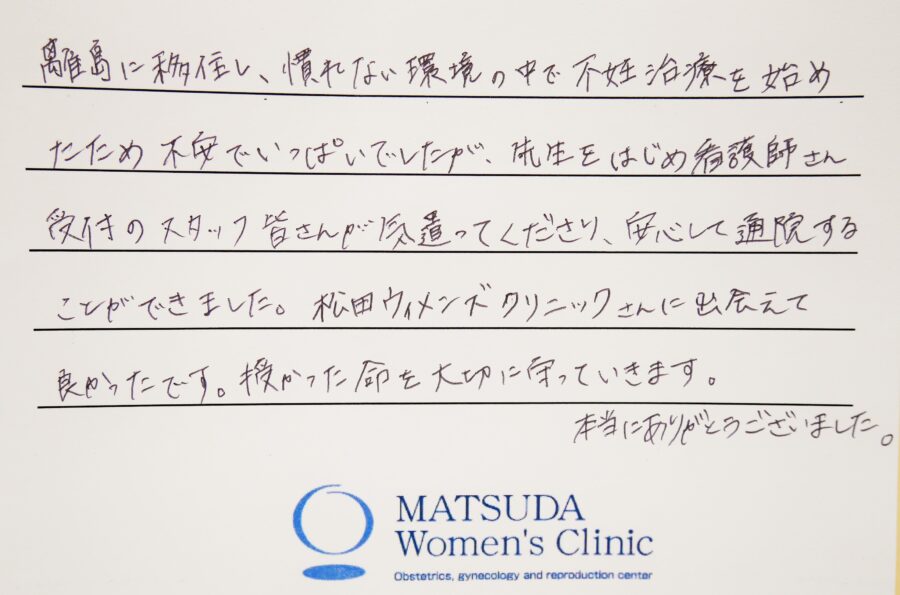 離島に移住し、慣れない環境の中で不妊治療を始め
たため不安でいっぱいでしたが、先生をはじめ看護師さん
受付のスタッフ皆さんが気遣ってくださり、安心して通院する
ことができました。松田ウィメンズクリニックさんに出会えて
良かったです。授かった命を大切に守っていきます。
本当にありがとうございました。
MATSUDA
Women's Clinic
Obstetrics, gynecology and reproduction center